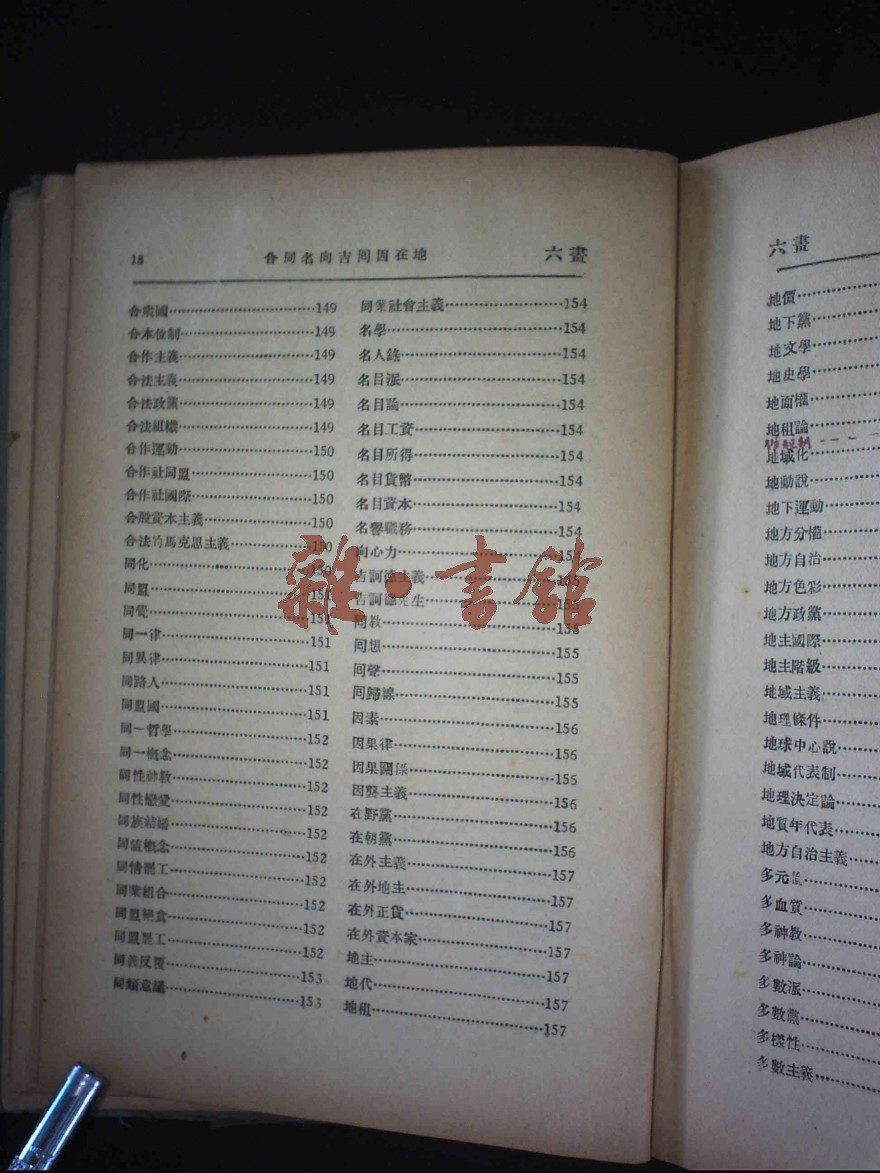 18
合同名向吉囘因在地
六畫
合衆國 149
合本位制 149
合作主義 149
合法主義 149
合法政黨 149
合法組織 149
合作運動 150
合作社同盟 150
合作社國際 150
合股資本主義 150
合法的馬克思主義 150
同化 150
同盟 151
同覺 151
同一律 151
同異律 151
同路人 151
同盟國 151
同一哲學 152
同一概念 152
同性神教 152
同性戀愛 152
同族結婚 152
同值概念 152
同情罷工 152
同業組合 152
同盟絕食 152
同盟罷工 152
同義反覆 153
同類意識 153
同業社會主義 154
名學 154
名人錄 154
名目派 154
名目論 154
名目工資 154
名目所得 154
名目貨幣 154
名目資本 154
名譽職務 154
向心力
吉訶德主義 155
吉訶德先生 155
囘教 155
囘想 155
囘聲 155
囘歸線 155
因素 156
因果律 156
因果關係 156
因襲主義 156
在野黨 156
在朝黨 156
在外主義 157
在外地主 157
在外正貨 157
在外資本家 157
地主 157
地代 157
地租 157
六畫
地價
地下黨
地文學
地史學
地面權
地租論
地域化
地動說
地下運動
地方分權
地方自治
地方色彩
地方政黨
地主國際
地主階級
地域主義
地理條件
地球中心說
地域代表制
地理決定論
地質年代表
地方自治主義
多元論
多血質
多神教
多神論
多數派
多數黨
多樣性
多數主義
雜·書館